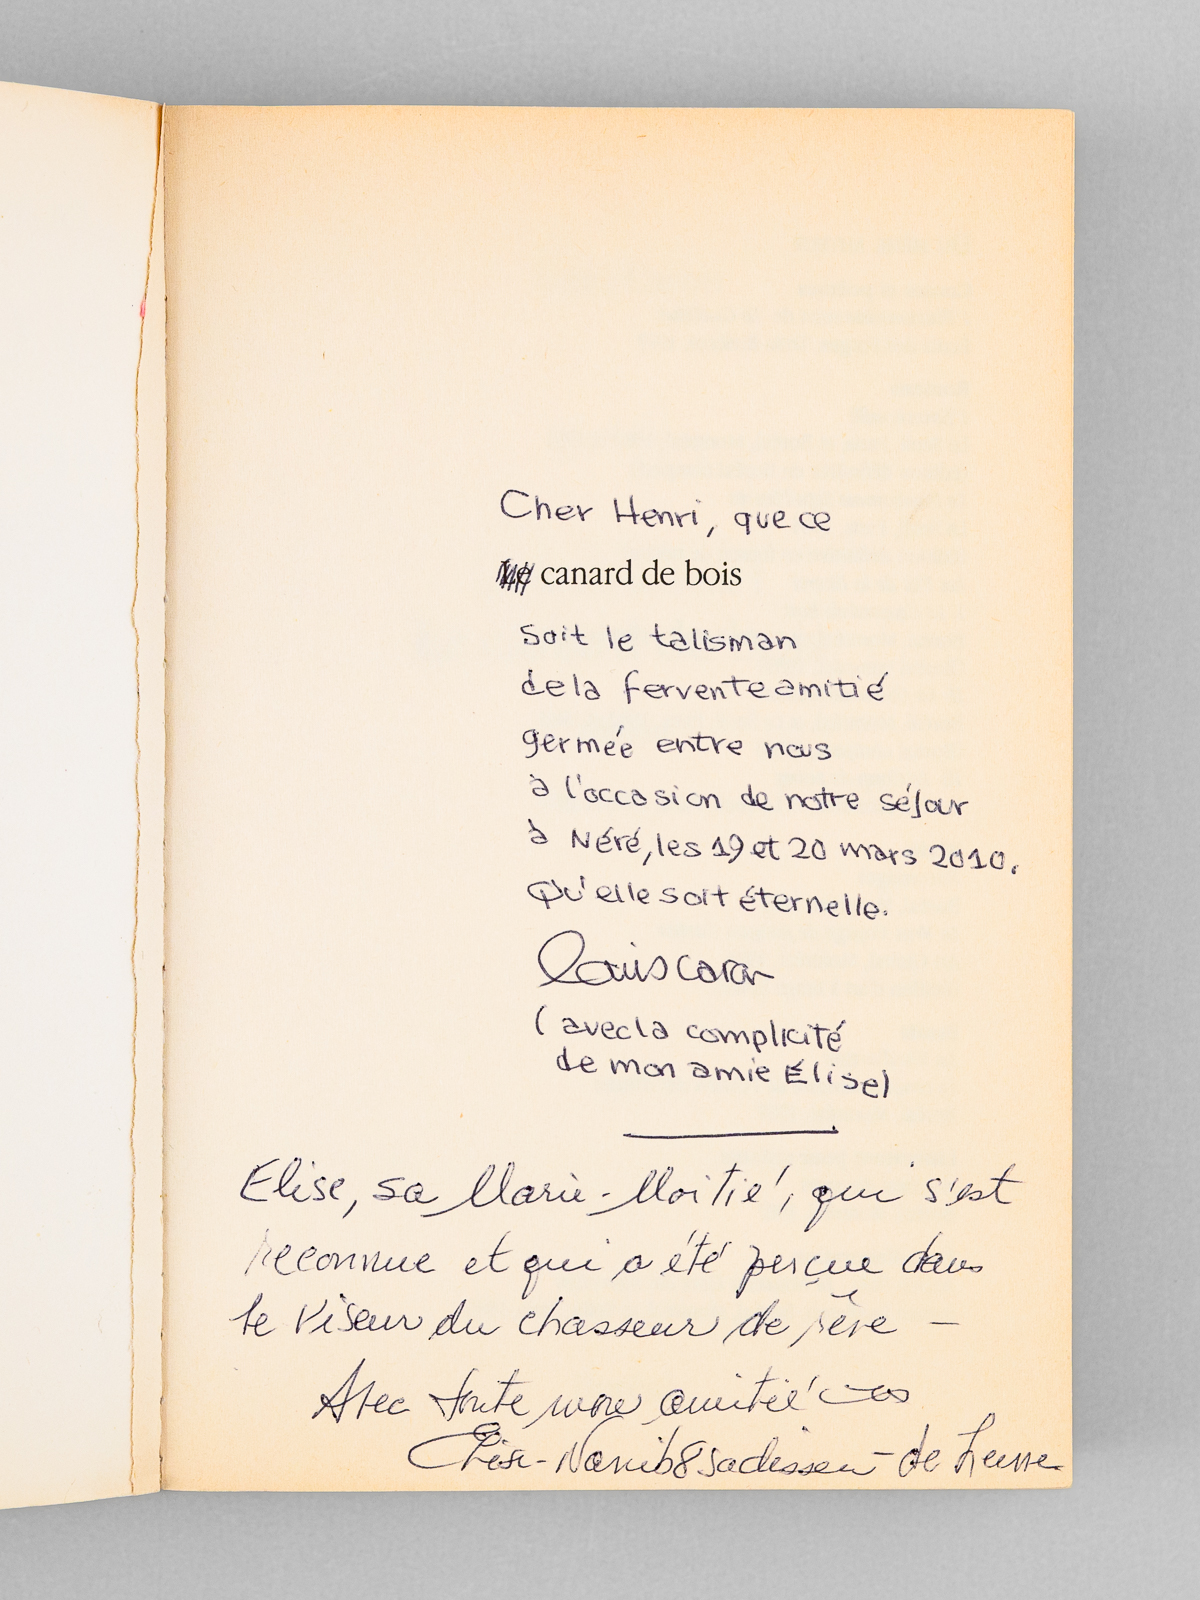 Cher Henri, que ce
canard de bois
soit le talisman
de la fervente amitié
germée entre nous
à l'occasion de notre séjour
à Néré, les 19 et 20 mars 2010.
Qu'elle soit éternelle.
Louis Caron
(avec la complicité
de mon amie Élise)
Elise, sa Marie-Moitié, qui s'est
reconnue et qui a été perçue dans
le viseur du chasseur de rêve —
Avec toute mon amitié
Elise